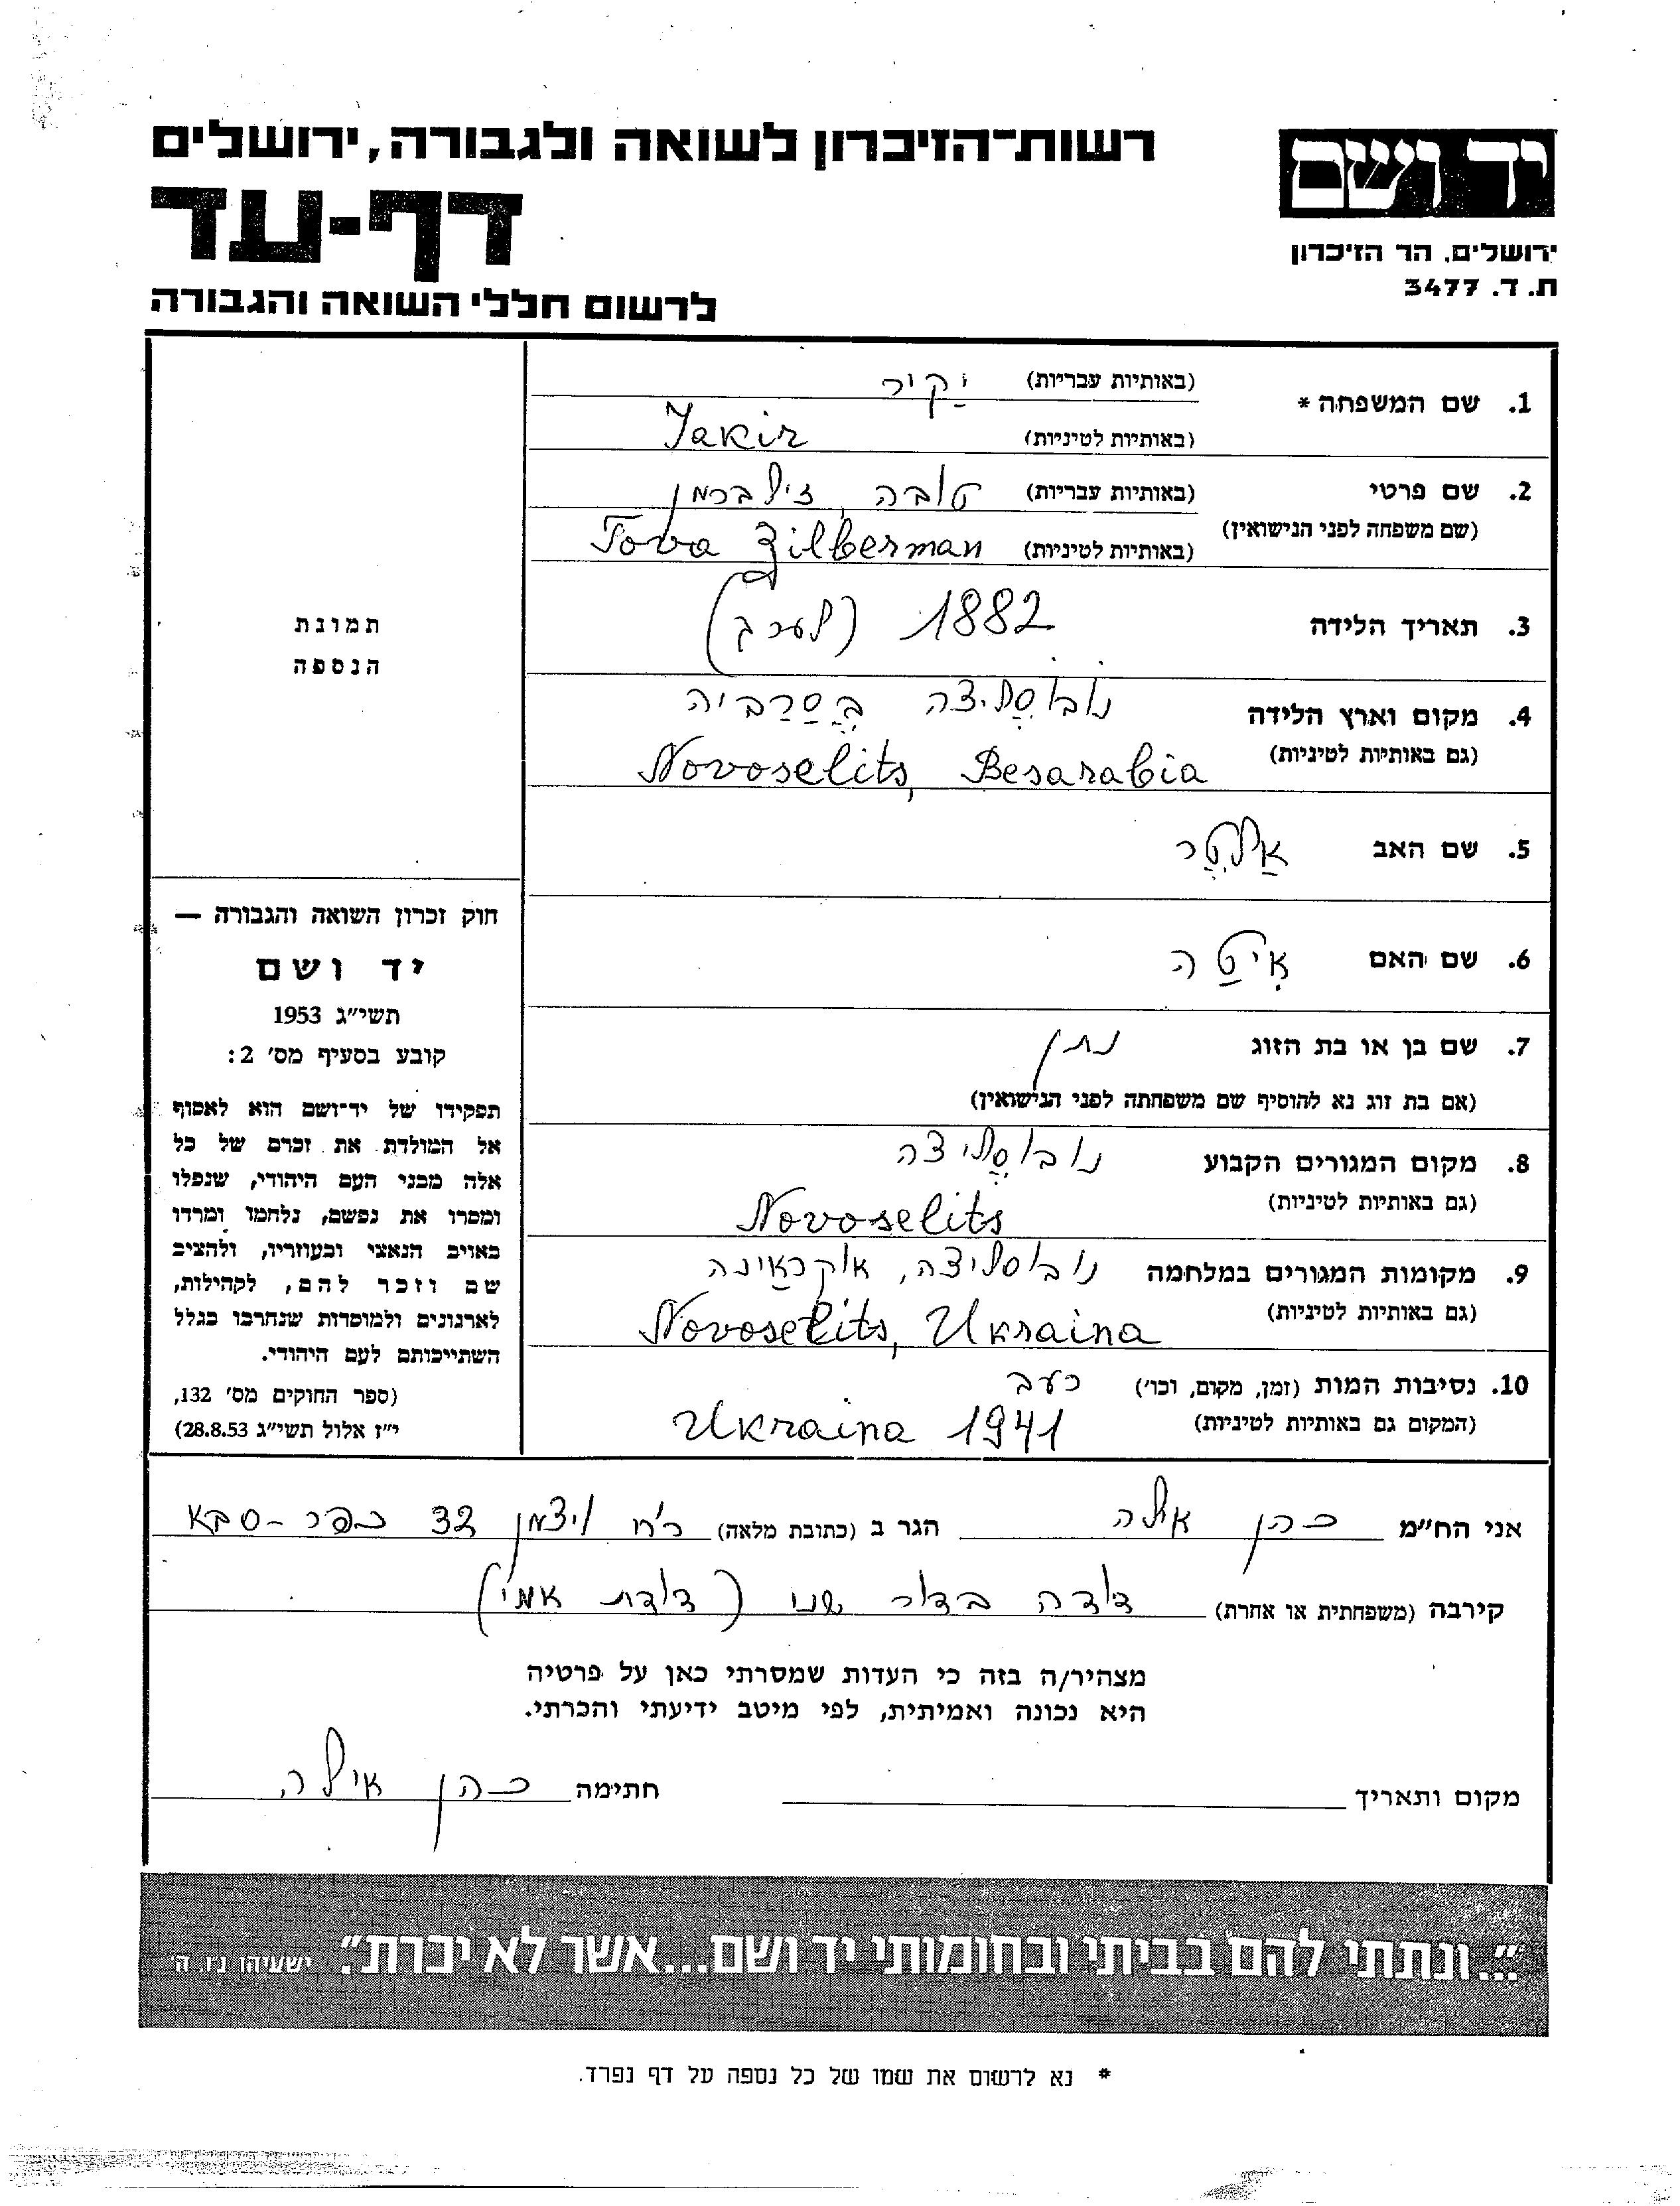 יד ושם
ירושלים. הר הזיכרון
ת. ד. 3477
רשות־הזיכרון לשואה ולגבורה, ירושלים
דף-עד
לרשום חללי השואה והגבורה
1. שם המשפחה * (באותיות עבריות) יָקיר
(באותיות לטיניות) Yakir
2. שם פרטי (באותיות עבריות) טובה זילברמן
(שם משפחה לפני הנישואין) (באותיות לטיניות) Tova Zilberman
3. תאריך הלידה 1882 (לערך)
4. מקום וארץ הלידה נובוסֶליצה בֶּסַרַביה
(גם באותיות לטיניות) Novoselits, Besarabia
5. שם האב אַלְטֶר
6. שם האם אִיטַה
7. שם בן או בת הזוג נתן
(אם בת זוג נא להוסיף שם משפחתה לפני הנישואין)
8. מקום המגורים הקבוע נובוסֶליצה
(גם באותיות לטיניות) Novoselits
9. מקומות המגורים במלחמה נובוסליצה, אוקראַינה
(גם באותיות לטיניות) Novoselits, Ukraina
10. נסיבות המות (זמן, מקום, וכו') רעב
(המקום גם באותיות לטיניות) Ukraina 1941
תמונת
הנספה
חוק זכרון השואה והגבורה —
יד ושם
תשי"ג 1953
קובע בסעיף מס' 2:
תפקידו של יד־ושם הוא לאסוף
אל המולדת את זכרם של כל
אלה מבני העם היהודי, שנפלו
ומסרו את נפשם, נלחמו ומרדו
באויב הנאצי ובעוזריו, ולהציב
שם וזכר להם, לקהילות,
לארגונים ולמוסדות שנחרבו בגלל
השתייכותם לעם היהודי.
(ספר החוקים מס' 132,
י"ז אלול תשי"ג 28.8.53)
אני הח"מ כהן אילה הגר ב (כתובת מלאה) רח' ויצמן 32 כפר-סבא
קירבה (משפחתית או אחרת) דודה בדור שני (דודת אמי)
מצהיר/ה בזה כי העדות שמסרתי כאן על פרטיה
היא נכונה ואמיתית, לפי מיטב ידיעתי והכרתי.
מקום ותאריך חתימה כהן אילה
"...ונתתי להם בביתי ובחומותי יד ושם...אשר לא יכרת". ישעיהו נ"ו, ה'
* נא לרשום את שמו של כל נספה על דף נפרד.